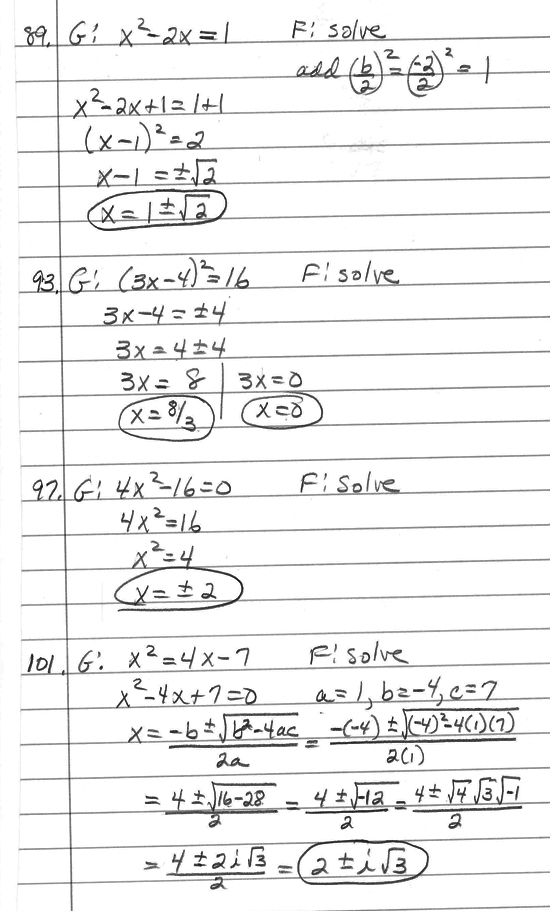 89. G: x²-2x=1 F: solve
add (b/2)²=(-2/2)²=1
x²-2x+1=1+1
(x-1)²=2
x-1=±√2
x=1±√2
93. G: (3x-4)²=16 F: solve
3x-4=±4
3x=4±4
3x=8 | 3x=0
x=8/3 | x=0
97. G: 4x²-16=0 F: Solve
4x²=16
x²=4
x=±2
101. G: x²=4x-7 F: solve
x²-4x+7=0 a=1, b=-4, c=7
x=(-b±√(b²-4ac))/(2a)=(-(-4)±√((-4)²-4(1)(7)))/(2(1))
=(4±√(16-28))/2=(4±√(-12))/2=(4±√4√3√-1)/2
=(4±2i√3)/2=2±i√3